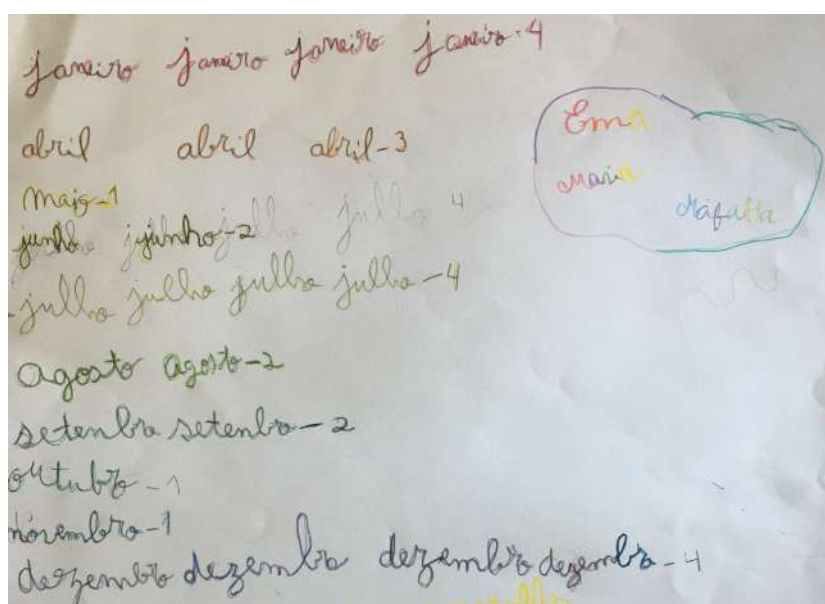 janeiro janeiro janeiro janeiro-4
abril abril abril-3
maio-1
junho junho-2
julho 4
julho julho julho julho-4
agosto agosto-2
setenbro setenbro-2
outubro-1
novembro-1
dezembro dezembro dezembro dezembro-4
Ema
Maria
Mafalda